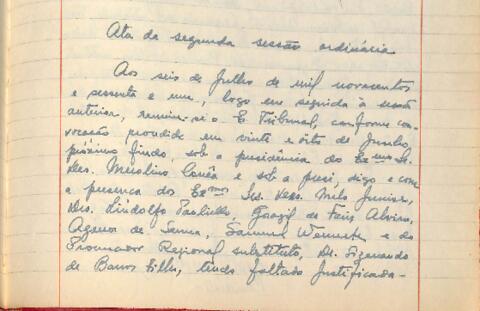 Ata da segunda sessão ordinária
Aos seis de Julho de mil novecentos
e sessenta e um, logo em seguida à sessão
anterior, reuniu-se o E. Tribunal, conforme con-
vocação procedida em vinte e oito de Junho,
próximo findo, sob a presidência do Exmo Sr.
Des. Merolino Corrêa e sob a presi, digo e com
a presença dos Exmos Srs. Des.
Drs. Lindolfo Paoliello, de Alvim,
Agenor de Senna, Samuel e do
Procurador Regional substituto, Dr. Sizenando
de Barros Filho, tendo faltado justificada-